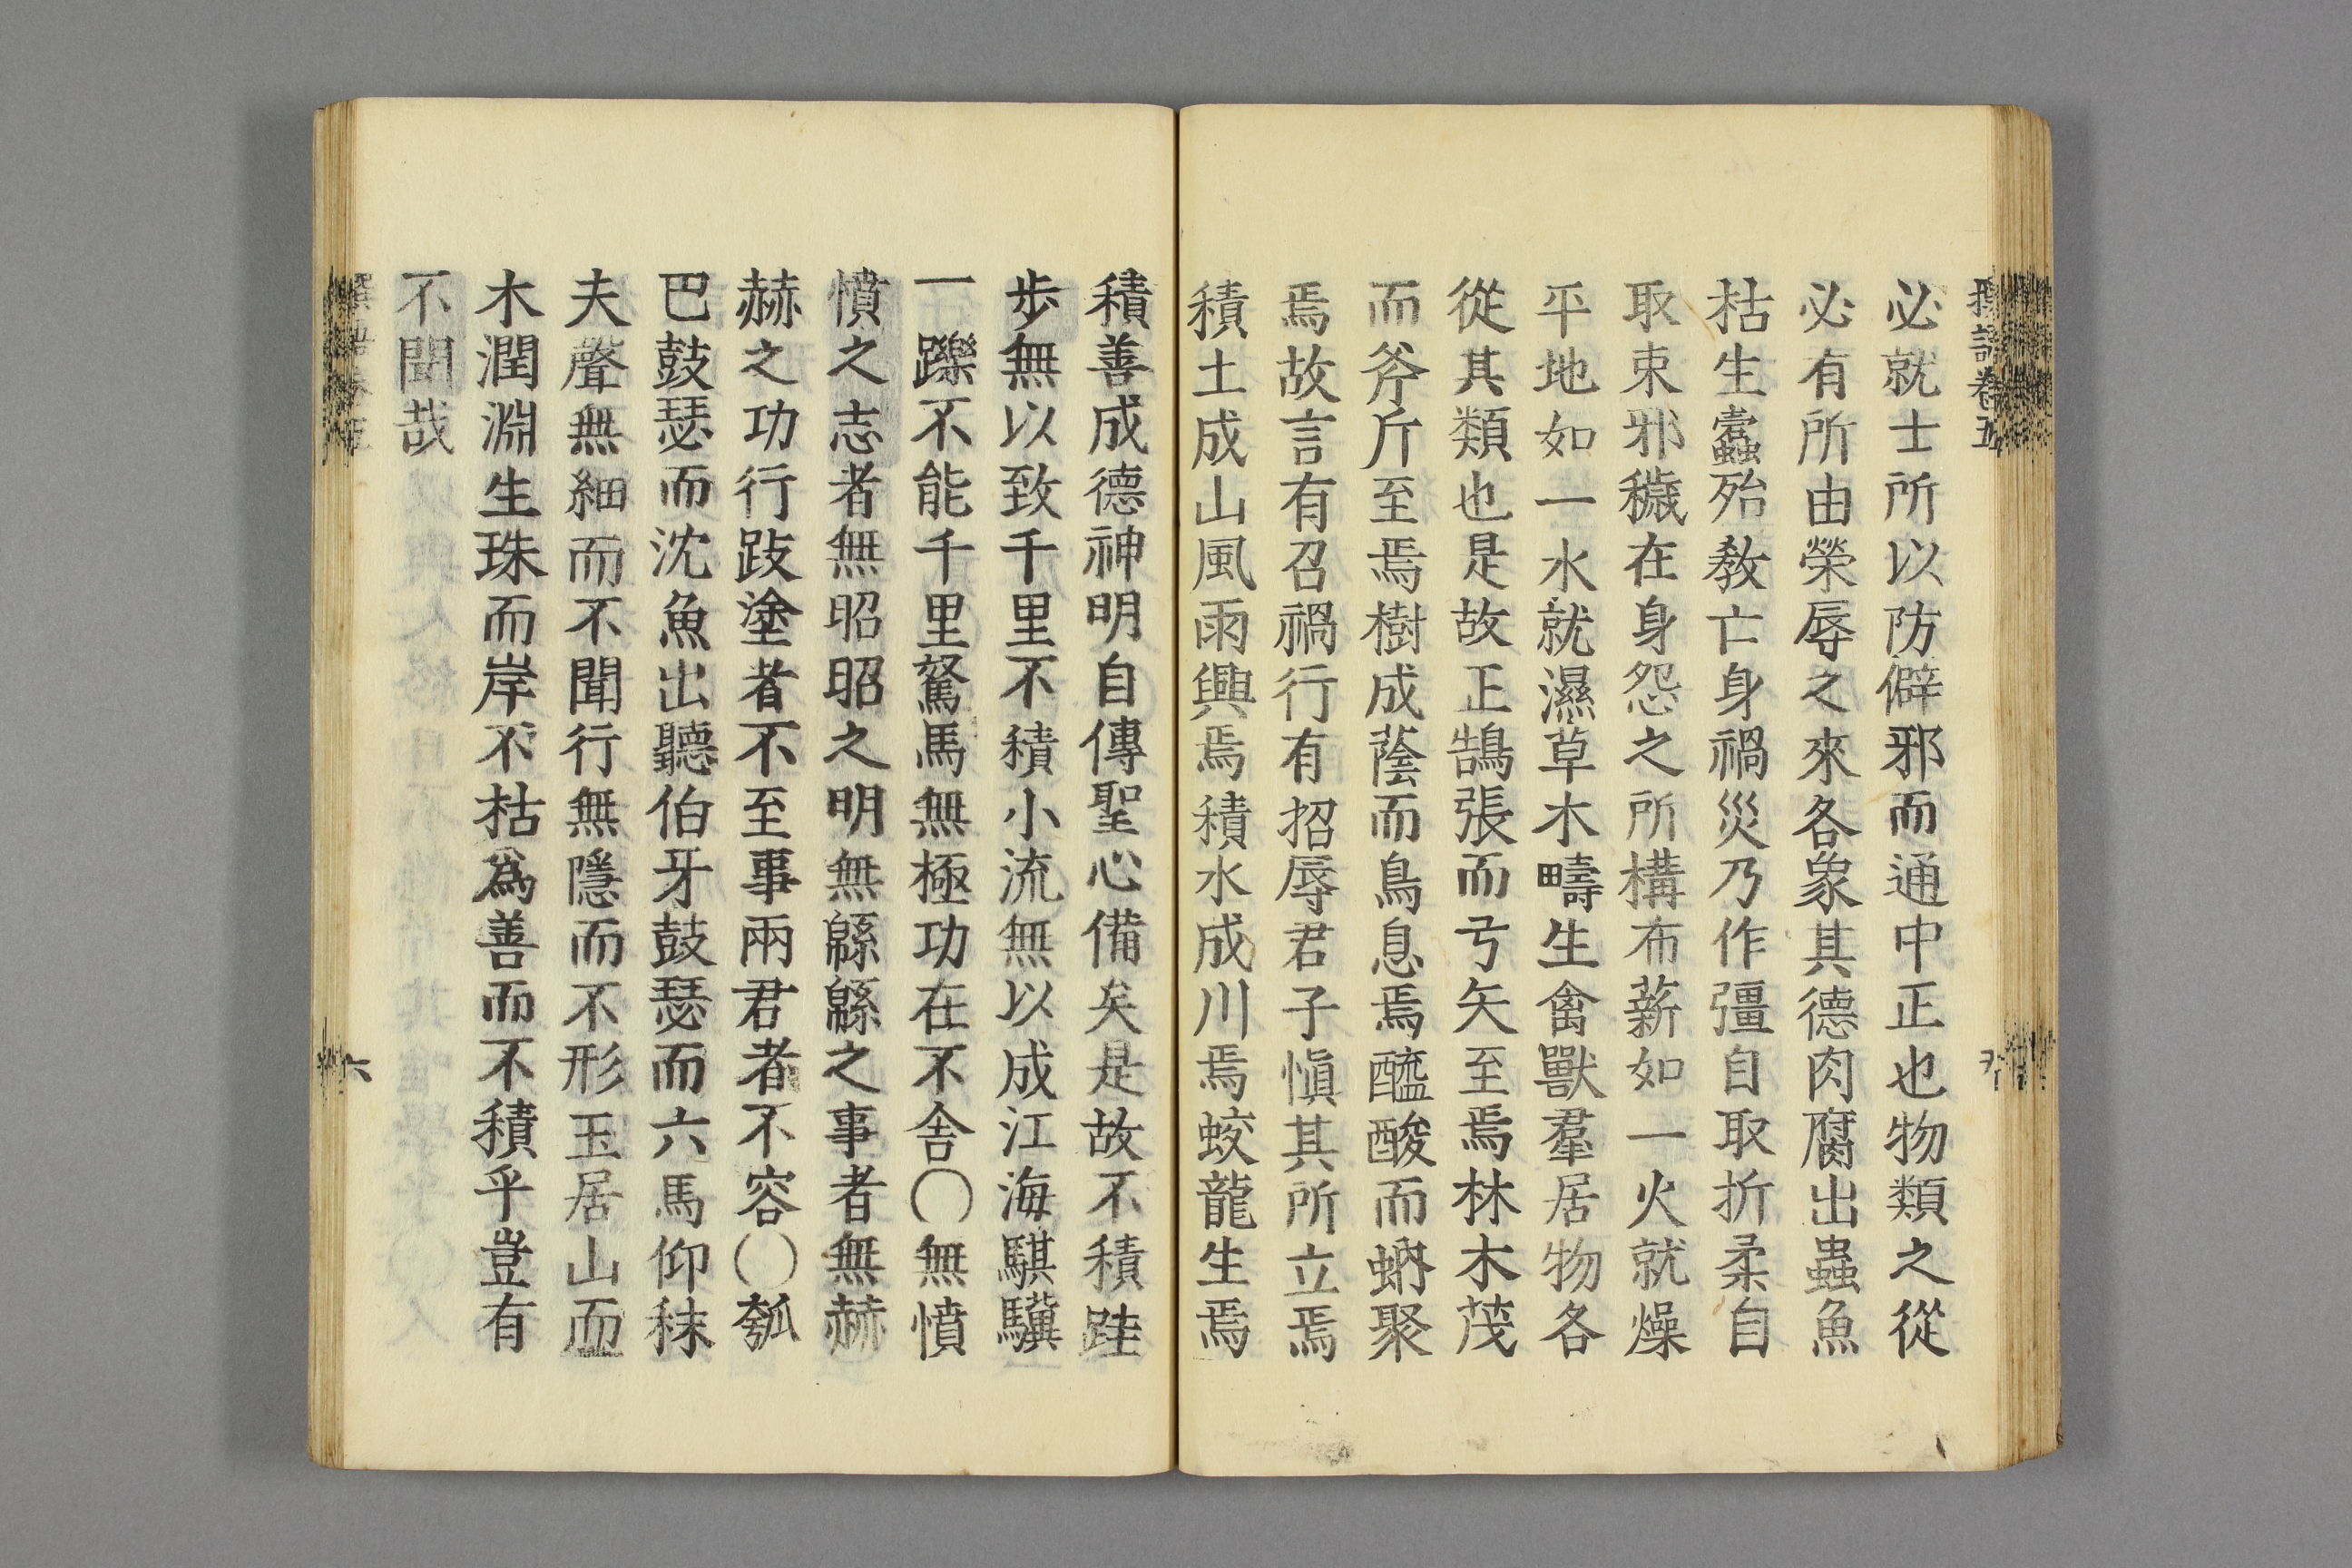 必就士所以防僻邪而通中正也物類之從
必有所由榮辱之來各象其德肉腐出蟲魚
枯生蠧殆敎亡身禍災乃作彊自取折柔自
取束邪穢在身怨之所構布薪如一火就燥
平地如一水就濕草木疇生禽獸羣居物各
從其類也是故正鵠張而弓矢至焉林木茂
而斧斤至焉樹成蔭而鳥息焉醯酸而蜹聚
焉故言有召禍行有招辱君子愼其所立焉
積土成山風雨興焉積水成川焉蛟龍生焉
積善成德神明自傳聖心備矣是故不積跬
步無以致千里不積小流無以成江海騏驥
一躒不能千里駑馬無極功在不舍〇無憤
憤之志者無昭昭之明無緜緜之事者無赫
赫之功行跂塗者不至事兩君者不容〇瓠
巴鼓瑟而沈魚出聽伯牙鼓瑟而六馬仰秣
夫聲無細而不聞行無隱而不形玉居山而
木潤淵生珠而岸不枯爲善而不積乎豈有
不聞哉
六